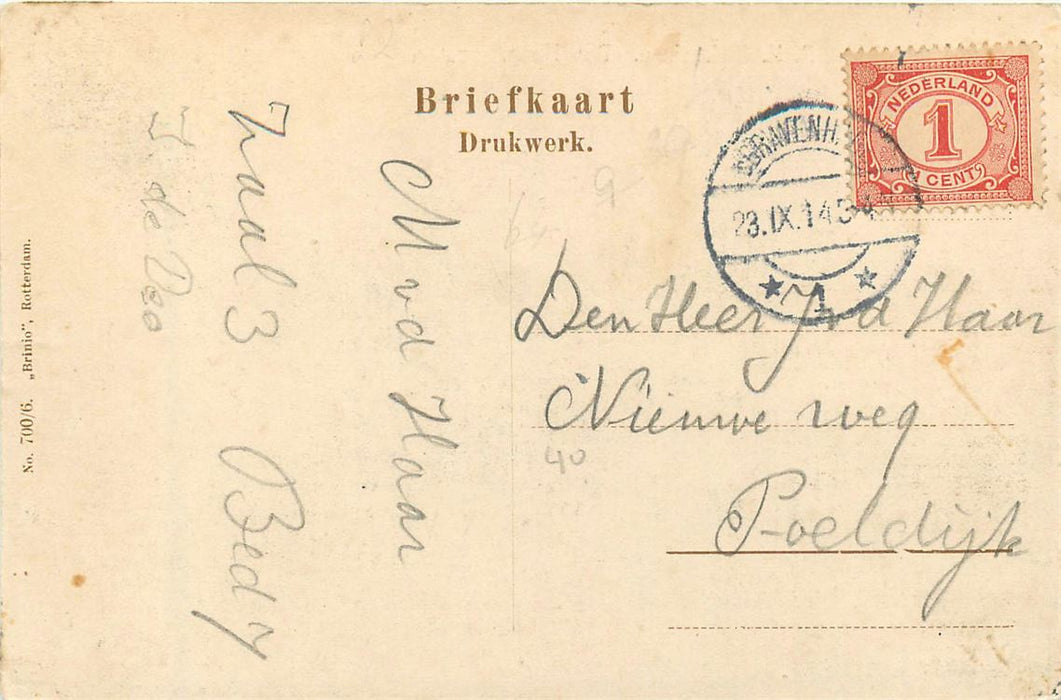 Briefkaart
Drukwerk.
NEDERLAND
1
CENT
23.IX.14 5-
71
Den Heer J vd Haar
Nieuwe weg
Poeldijk
40
M vd Haar
Zaal 3 Bed 7
No. 700/6. „Brinio”, Rotterdam.